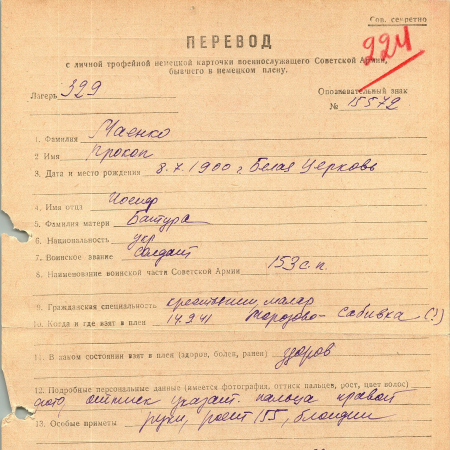 Сов. секретно
924
ПЕРЕВОД
с личной трофейной немецкой карточки военнослужащего Советской Армии,
бывшего в немецком плену.
Лагерь 329
Опознавательный знак
№ 15572
1. Фамилия Маенко
2 Имя Прокоп
3. Дата и место рождения 8.7.1900 г Белая Церковь
4. Имя отца Иосиф
5. Фамилия матери Батура
6. Национальность укр
7. Воинское звание солдат
8. Наименование воинской части Советской Армии 153 с.п.
9. Гражданская специальность крестьянин, маляр
10. Когда и где взят в плен 14.9.41 Морозово-Савивка (?)
11. В каком состоянии взят в плен (здоров, болен, ранен) здоров
12. Подробные персональные данные (имеется фотография, оттиск пальцев, рост, цвет волос)
фото, оттиск указат. пальца правой
13. Особые приметы руки, рост 155, блондин